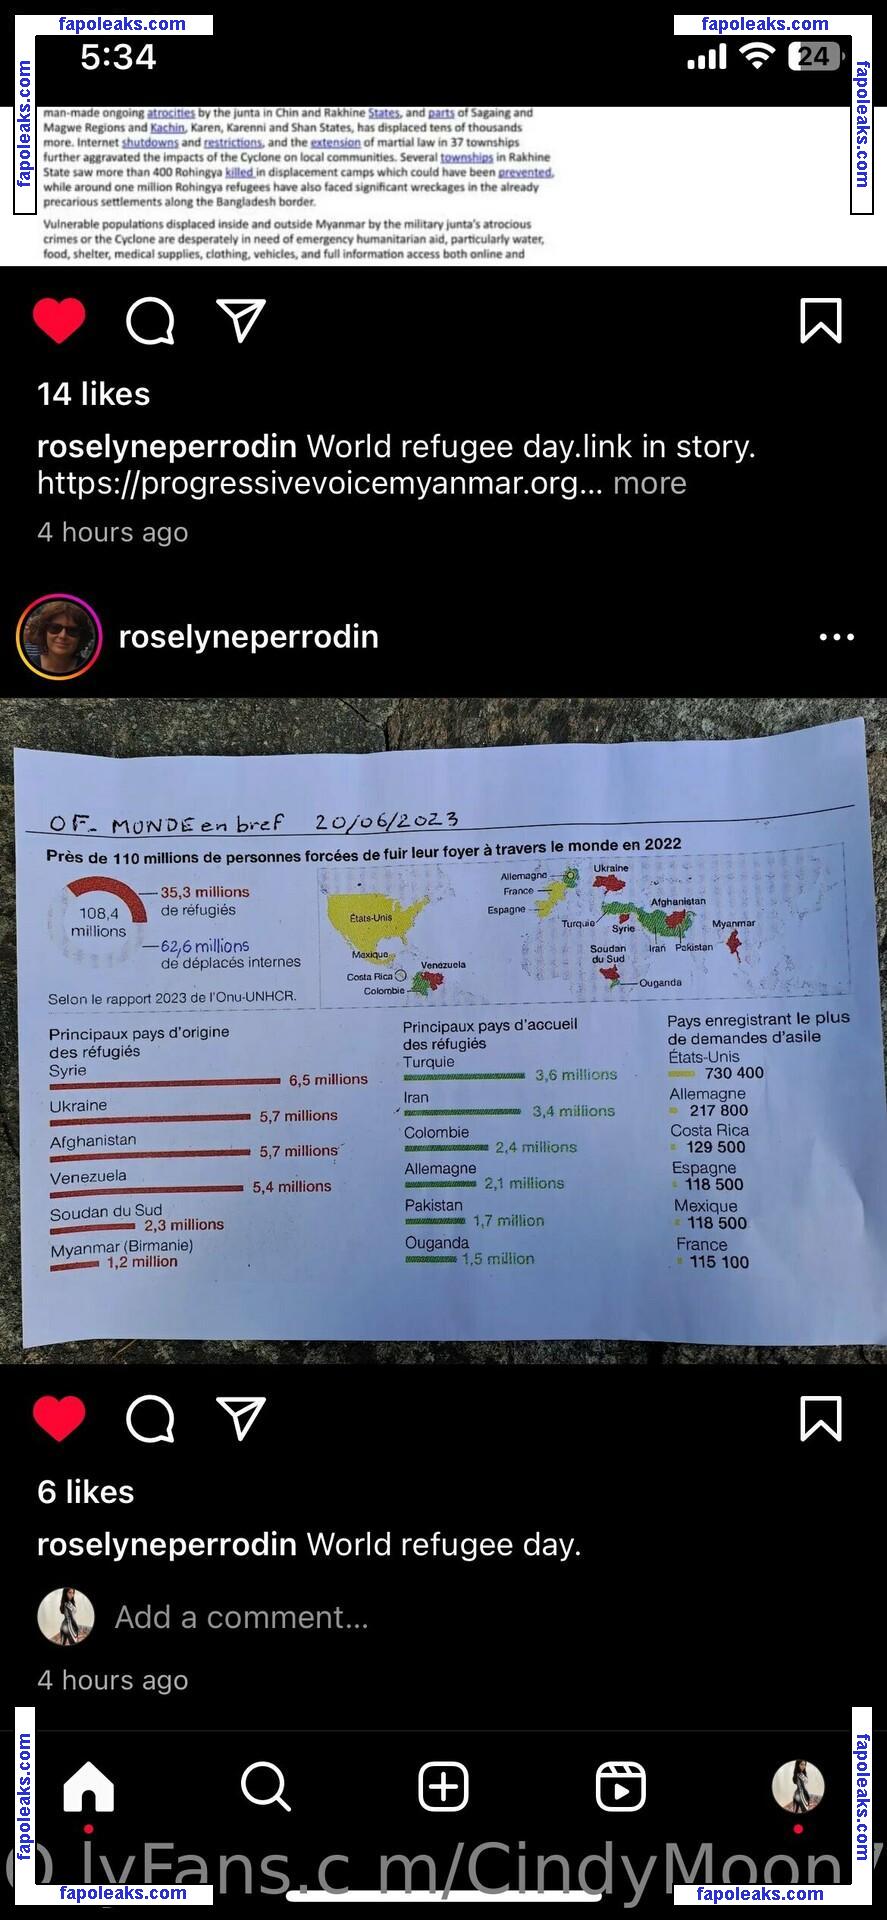 fapoleaks.com
fapoleaks.com
5:34
24
fapoleaks.com
fapoleaks.com
man-made ongoing atrocities by the junta in Chin and Rakhine States, and parts of Sagaing and
Magwe Regions and Kachin, Karen, Karenni and Shan States, has displaced tens of thousands
more. Internet shutdowns and restrictions, and the extension of martial law in 37 townships
further aggravated the impacts of the Cyclone on local communities. Several townships in Rakhine
State saw more than 400 Rohingya killed in displacement camps which could have been prevented,
while around one million Rohingya refugees have also faced significant wreckages in the already
precarious settlements along the Bangladesh border.
Vulnerable populations displaced inside and outside Myanmar by the military junta's atrocious
crimes or the Cyclone are desperately in need of emergency humanitarian aid, particularly water,
food, shelter, medical supplies, clothing, vehicles, and full information access both online and
14 likes
roselyneperrodin World refugee day.link in story.
https://progressivevoicemyanmar.org... more
4 hours ago
roselyneperrodin
OF- MONDE en bref 20/06/2023
Près de 110 millions de personnes forcées de fuir leur foyer à travers le monde en 2022
108,4
millions
35,3 millions
de réfugiés
62,6 millions
de déplacés internes
Selon le rapport 2023 de l'Onu-UNHCR.
États-Unis
Mexique
Costa Rica
Colombie
Venezuela
Allemagne
France
Espagne
Ukraine
Turquie
Syrie
Afghanistan
Iran
Pakistan
Myanmar
Soudan
du Sud
Ouganda
Principaux pays d'origine
des réfugiés
Syrie
6,5 millions
Ukraine
5,7 millions
Afghanistan
5,7 millions
Venezuela
5,4 millions
Soudan du Sud
2,3 millions
Myanmar (Birmanie)
1,2 million
Principaux pays d'accueil
des réfugiés
Turquie
3,6 millions
Iran
3,4 millions
Colombie
2,4 millions
Allemagne
2,1 millions
Pakistan
1,7 million
Ouganda
1,5 million
Pays enregistrant le plus
de demandes d'asile
États-Unis
730 400
Allemagne
217 800
Costa Rica
129 500
Espagne
118 500
Mexique
118 500
France
115 100
6 likes
roselyneperrodin World refugee day.
Add a comment...
4 hours ago
fapoleaks.com
fapoleaks.com
lyFans.c m/CindyMoon
fapoleaks.com
fapoleaks.com